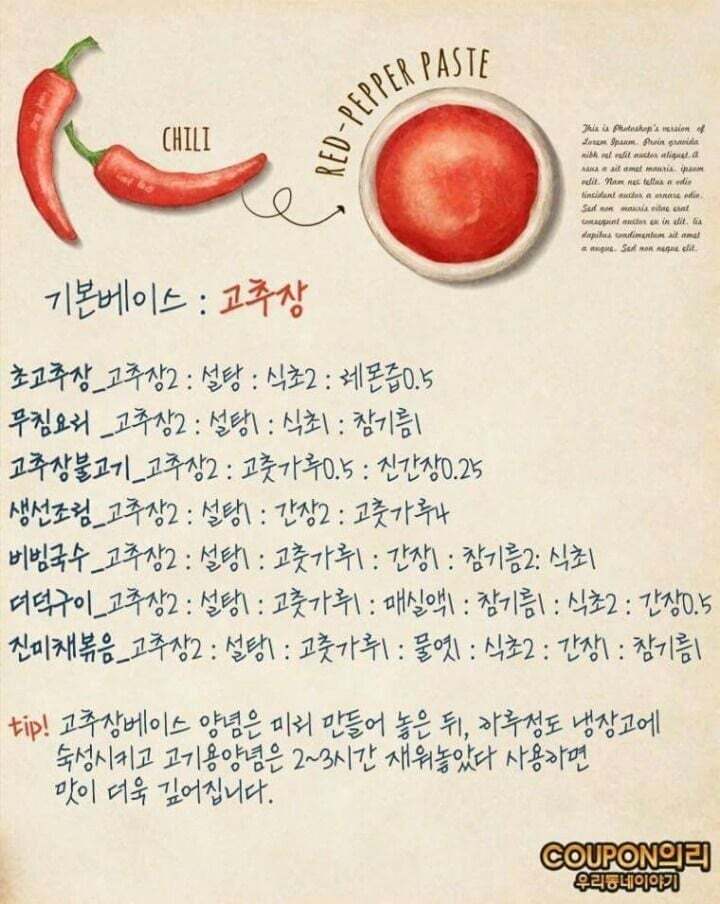 CHILI
RED-PEPPER PASTE
This is Photoshop's version of
Lorem Ipsum. Proin gravida
nibh vel velit auctor aliquet. A
risus a sit amet mauris. ipsum
velit. Nam nec tellus a odio
tincidunt auctor a ornare odio.
Sed non mauris vitae erat
consequat auctor eu in elit.
dapibus condimentum sit amet
a augue. Sed non neque elit.
기본베이스 : 고추장
초고추장_고추장2 : 설탕 : 식초2 : 레몬즙0.5
무침요리 _고추장2 : 설탕1 : 식초1 : 참기름1
고추장불고기_고추장2 : 고춧가루0.5 : 진간장0.25
생선조림_고추장2 : 설탕1 : 간장2 : 고춧가루4
비빔국수_고추장2 : 설탕1 : 고춧가루1 : 간장1 : 참기름2: 식초1
더덕구이_고추장2 : 설탕1 : 고춧가루1 : 매실액1 : 참기름1 : 식초2 : 간장0.5
진미채볶음_고추장2 : 설탕1 : 고춧가루1 : 물엿1 : 식초2 : 간장1 : 참기름1
tip! 고추장베이스 양념은 미리 만들어 놓은 뒤, 하루정도 냉장고에
숙성시키고 고기용양념은 2~3시간 재워놓았다 사용하면
맛이 더욱 깊어집니다.
COUPON의리
우리동네이야기